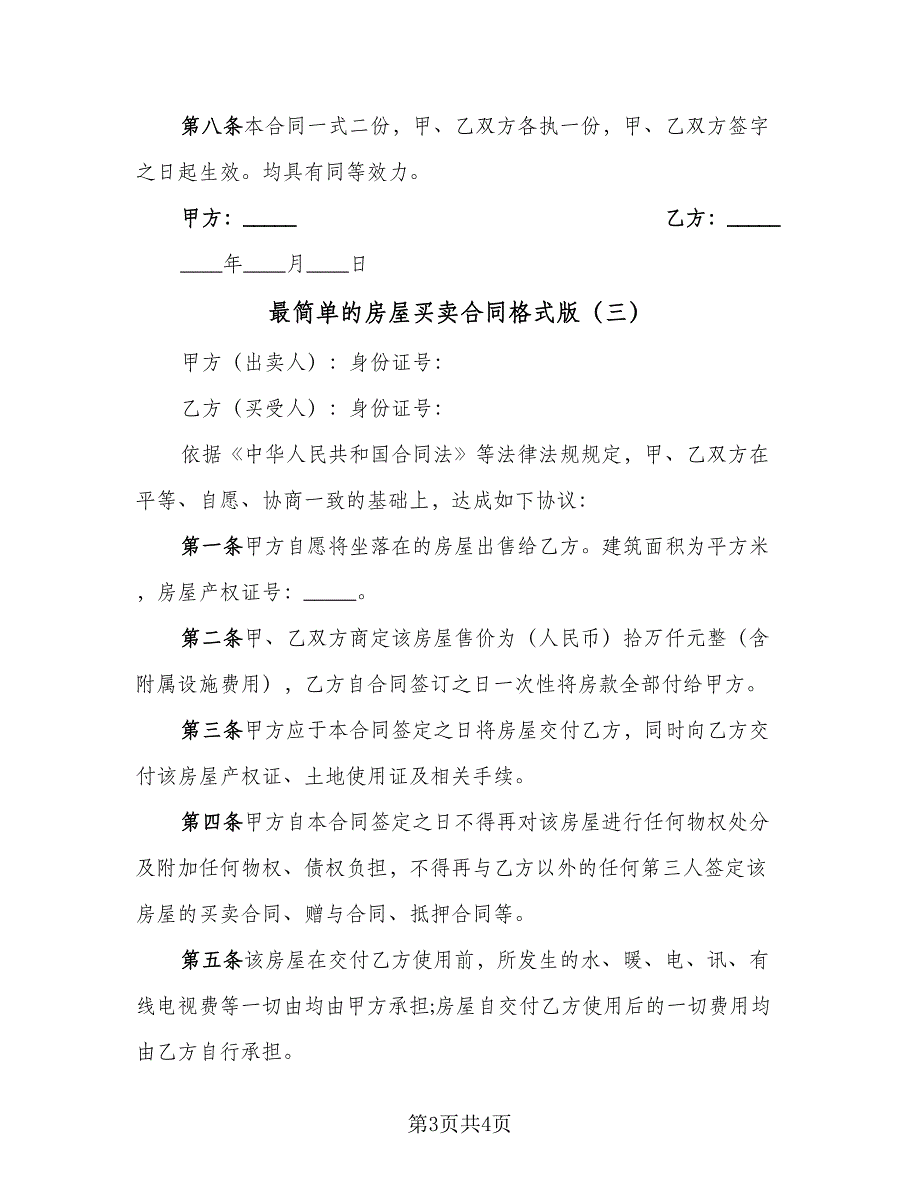 第八条本合同一式二份，甲、乙双方各执一份，甲、乙双方签字
之日起生效。均具有同等效力。
甲方：_____ 乙方：_____
____年____月____日
最简单的房屋买卖合同格式版（三）
甲方（出卖人）：身份证号：
乙方（买受人）：身份证号：
依据《中华人民共和国合同法》等法律法规规定，甲、乙双方在
平等、自愿、协商一致的基础上，达成如下协议：
第一条甲方自愿将坐落在的房屋出售给乙方。建筑面积为平方米
，房屋产权证号：_____。
第二条甲、乙双方商定该房屋售价为（人民币）拾万仟元整（含
附属设施费用），乙方自合同签订之日一次性将房款全部付给甲方。
第三条甲方应于本合同签定之日将房屋交付乙方，同时向乙方交
付该房屋产权证、土地使用证及相关手续。
第四条甲方自本合同签定之日不得再对该房屋进行任何物权处分
及附加任何物权、债权负担，不得再与乙方以外的任何第三人签定该
房屋的买卖合同、赠与合同、抵押合同等。
第五条该房屋在交付乙方使用前，所发生的水、暖、电、讯、有
线电视费等一切由均由甲方承担;房屋自交付乙方使用后的一切费用均
由乙方自行承担。
第3页共4页